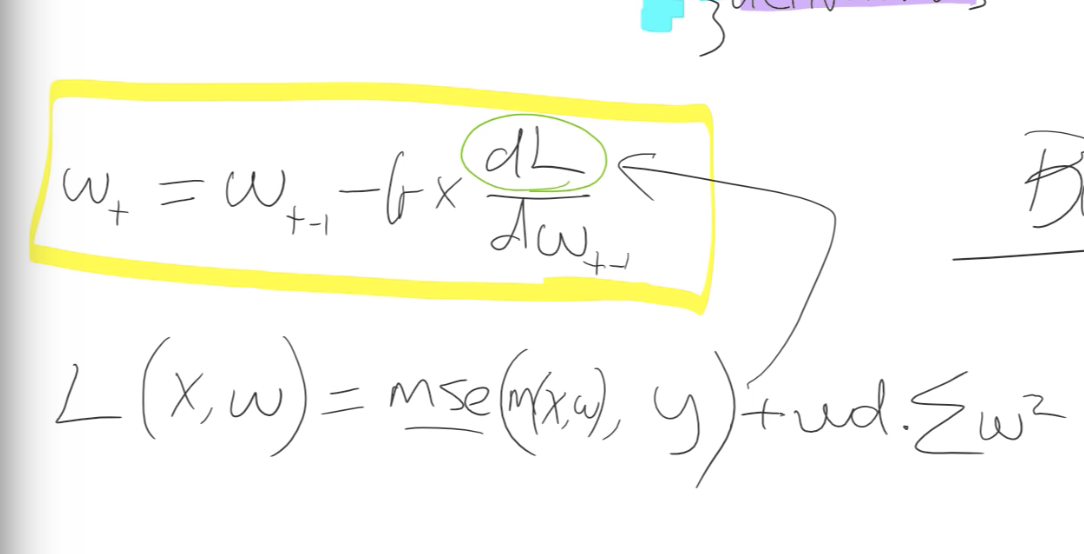 w_t = w_{t-1} - lr × dL/dw_{t-1}
L(x,w) = mse(m(x,w), y) + wd · Σw²